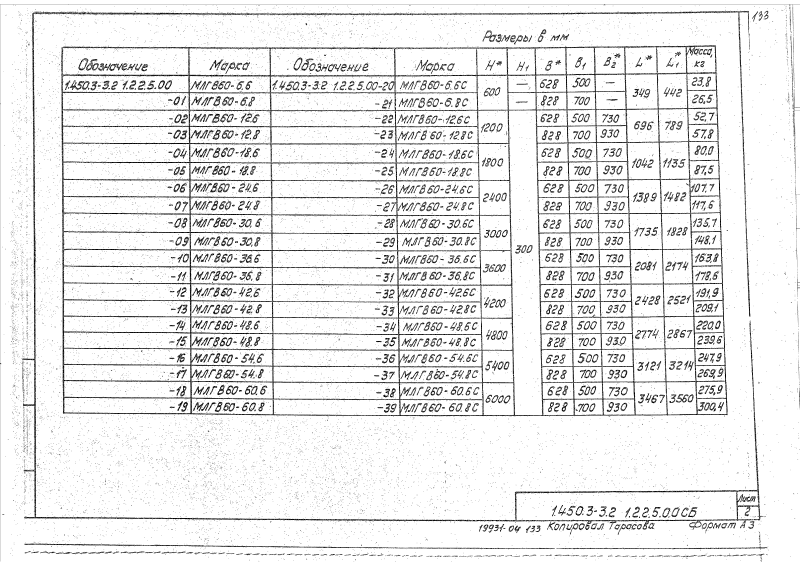 133
Размеры в мм
Обозначение Марка Обозначение Марка H* H₁ B* B₁ B₂* L* L₁* Масса, кг
1.450.3-3.2 1.2.2.5.00 МЛГВ60-6.6 1.450.3-3.2 1.2.2.5.00-20 МЛГВ60-6.6С 600 — 628 500 — 349 442 23,8
-01 МЛГВ60-6.8 -21 МЛГВ60-6.8С — 828 700 — 26,5
-02 МЛГВ60-12.6 -22 МЛГВ60-12.6С 1200 300 628 500 730 696 789 52,7
-03 МЛГВ60-12.8 -23 МЛГВ60-12.8С 828 700 930 57,8
-04 МЛГВ60-18.6 -24 МЛГВ60-18.6С 1800 628 500 730 1042 1135 80,0
-05 МЛГВ60-18.8 -25 МЛГВ60-18.8С 828 700 930 87,5
-06 МЛГВ60-24.6 -26 МЛГВ60-24.6С 2400 628 500 730 1389 1482 107.7
-07 МЛГВ60-24.8 -27 МЛГВ60-24.8С 828 700 930 117,6
-08 МЛГВ60-30.6 -28 МЛГВ60-30.6С 3000 628 500 730 1735 1828 135,7
-09 МЛГВ60-30.8 -29 МЛГВ60-30.8С 828 700 930 148,1
-10 МЛГВ60-36.6 -30 МЛГВ60-36.6С 3600 628 500 730 2081 2174 163,8
-11 МЛГВ60-36.8 -31 МЛГВ60-36.8С 828 700 930 178,6
-12 МЛГВ60-42.6 -32 МЛГВ60-42.6С 4200 628 500 730 2428 2521 191,9
-13 МЛГВ60-42.8 -33 МЛГВ60-42.8С 828 700 930 209,1
-14 МЛГВ60-48.6 -34 МЛГВ60-48.6С 4800 628 500 730 2774 2867 220,0
-15 МЛГВ60-48.8 -35 МЛГВ60-48.8С 828 700 930 239,6
-16 МЛГВ60-54.6 -36 МЛГВ60-54.6С 5400 628 500 730 3121 3214 247,9
-17 МЛГВ60-54.8 -37 МЛГВ60-54.8С 828 700 930 269,9
-18 МЛГВ60-60.6 -38 МЛГВ60-60.6С 6000 628 500 730 3467 3560 275,9
-19 МЛГВ60-60.8 -39 МЛГВ60-60.8С 828 700 930 300,4
1.450.3-3.2 1.2.2.5.00СБ Лист 2
19931-04 133 Копировал Тарасова Формат А3